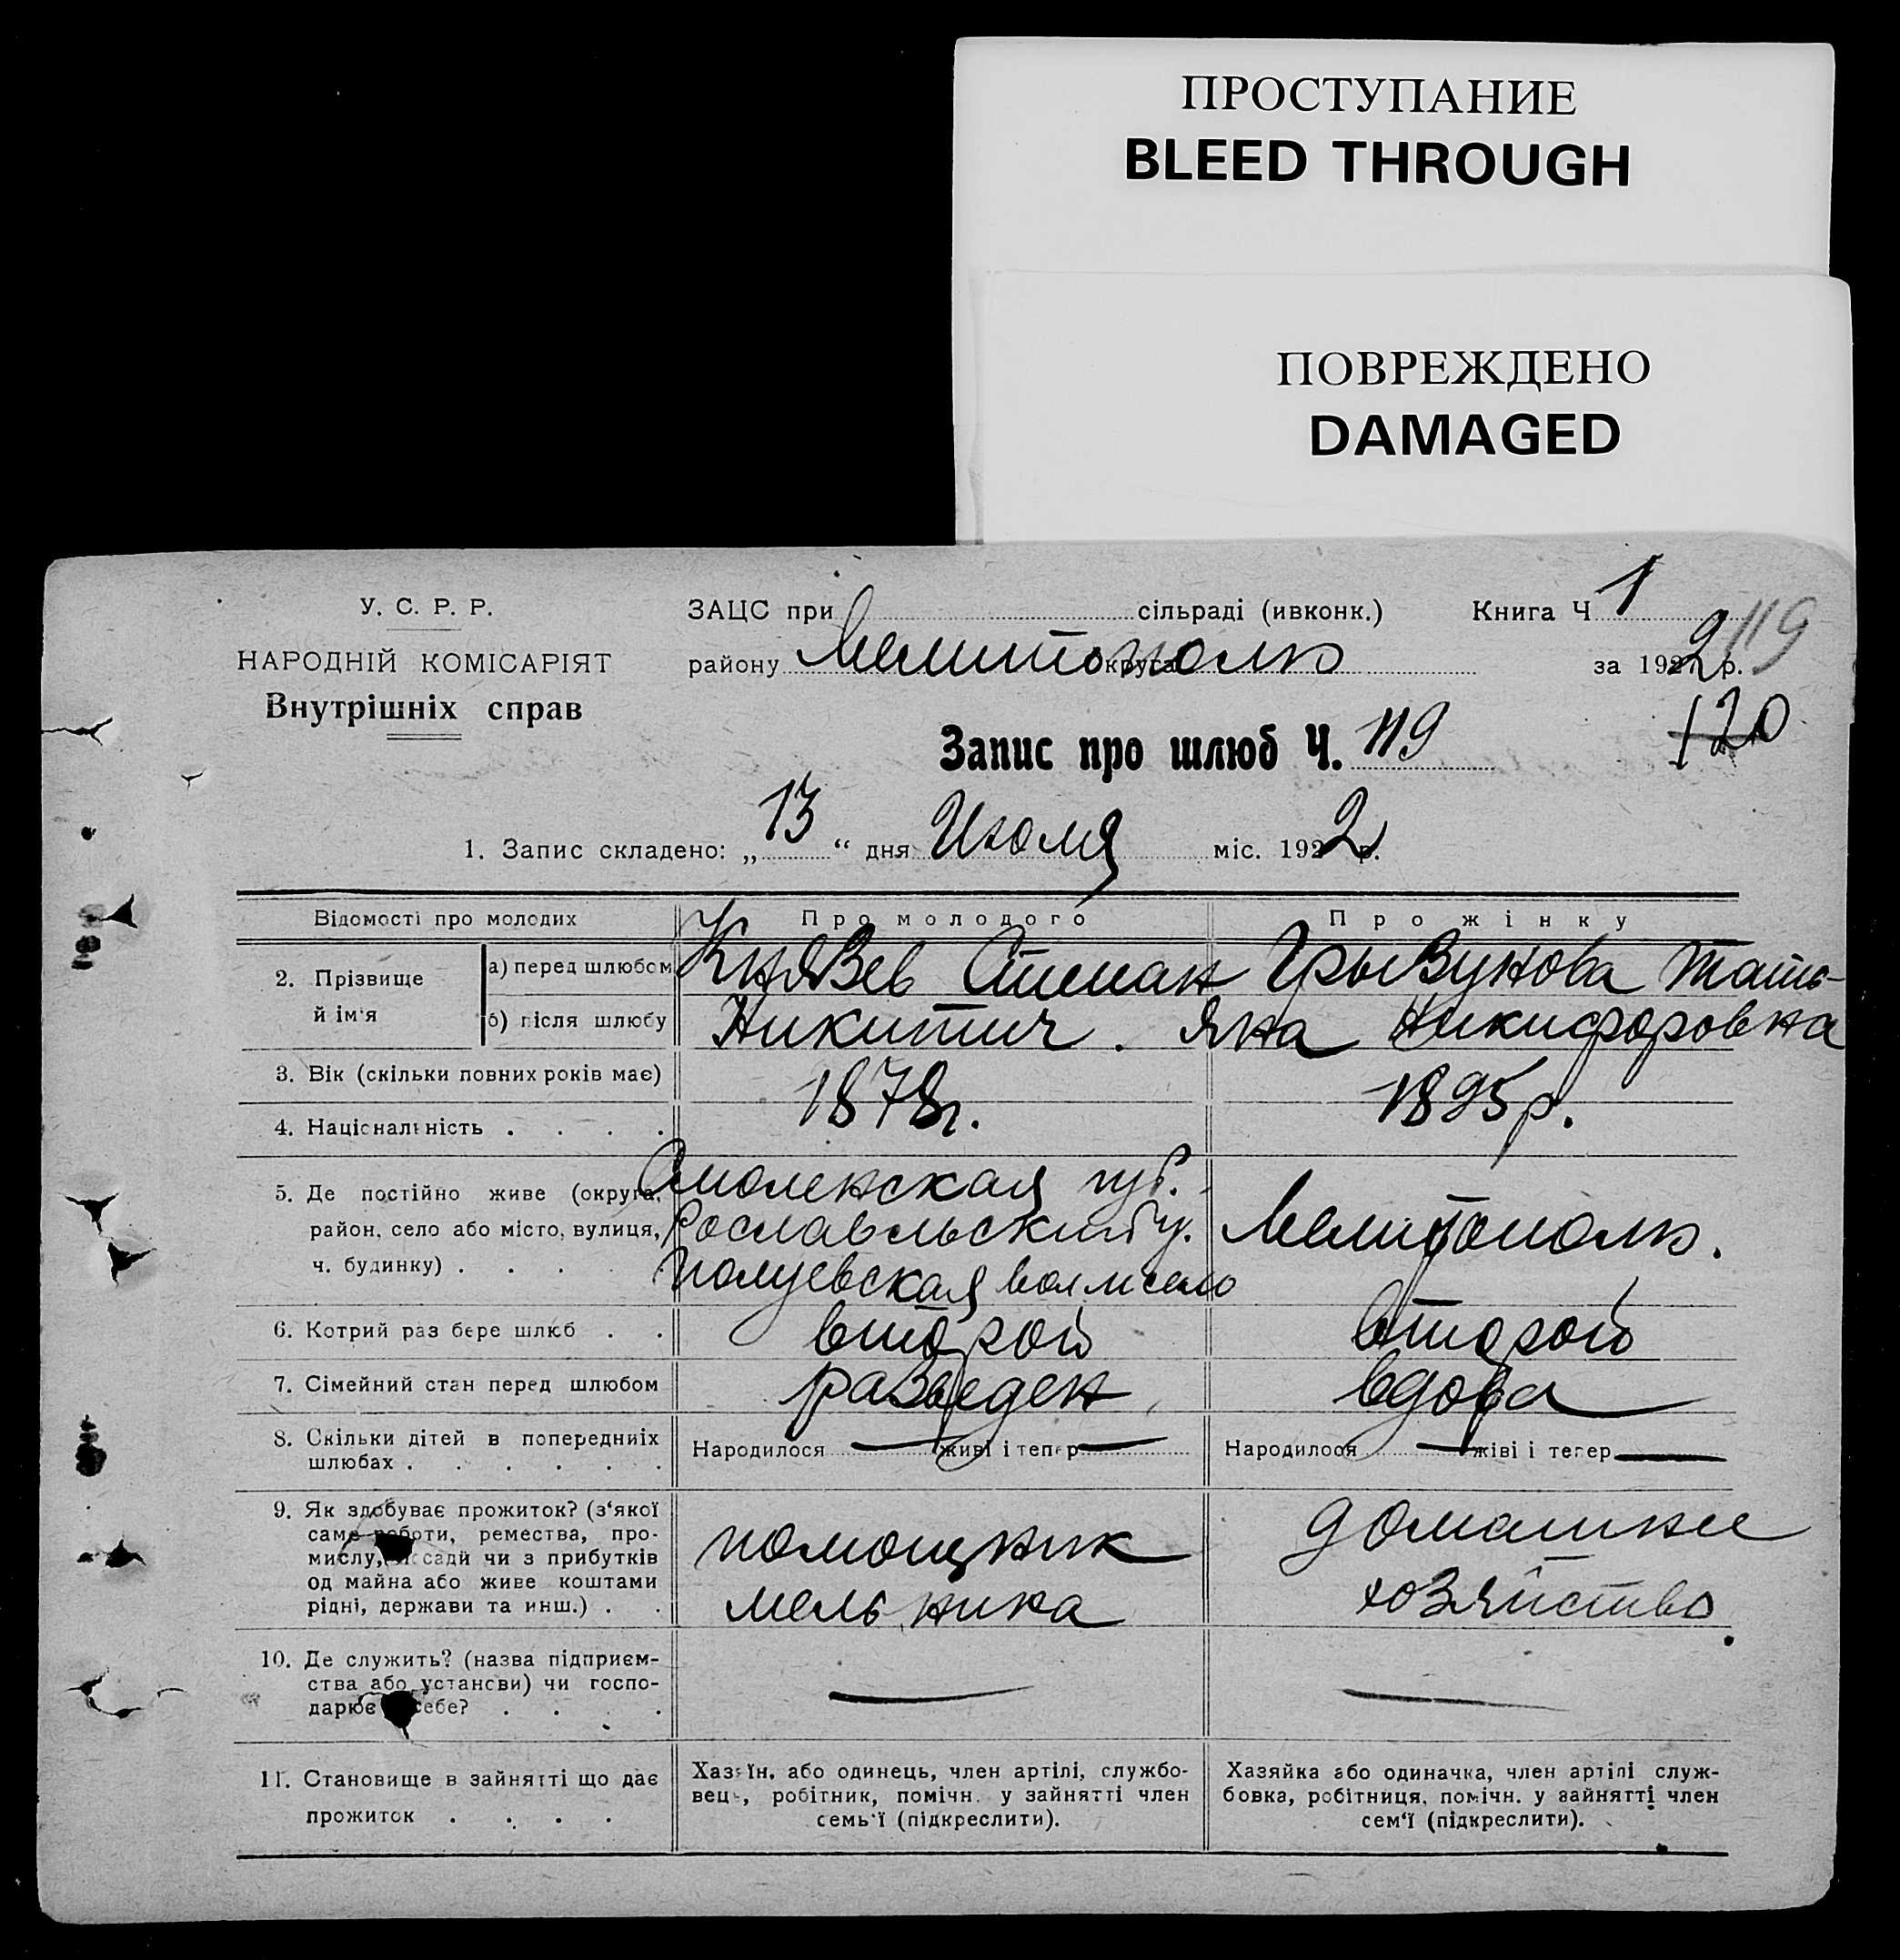 ПРОСТУПАНИЕ
BLEED THROUGH
ПОВРЕЖДЕНО
DAMAGED
У. С. Р. Р.
НАРОДНІЙ КОМІСАРІЯТ
Внутрішніх справ
ЗАЦС при сільраді (ивконк.) Книга Ч 1
району Мелитополь округа за 1922 р. 119
120
Запис про шлюб Ч. 119
1. Запис складено: „ 13 “ дня Июля міс. 1922 р.
Відомості про молодих Про молодого Про жінку
2. Прізвище й ім'я
а) перед шлюбом Князев Степан Грызунова Тать-
б) після шлюбу Никитич. яна Никифоровна
3. Вік (скільки повних років має) 1878г. 1895р.
4. Національність . . . .
5. Де постійно живе (округа, Смоленская губ.
район, село або місто, вулиця, Рославльский у. Мелитополь.
ч. будинку) . . . .
6. Котрий раз бере шлюб . . второй второй
7. Сімейний стан перед шлюбом разведен вдова
8. Скільки дітей в попередніх Народилося — живі і тепер — Народилося — жіві і тепер —
шлюбах . . . . . .
9. Як здобуває прожиток? (з'якої
саме роботи, ремества, про-
мислу, посади чи з прибутків
од майна або живе коштами
рідні, держави та инш.) . .
помощник
мельника
домашнее
хозяйство
10. Де служить? (назва підприєм-
ства або установи) чи госпо-
дарює себе? . . . .
— —
11. Становище в зайнятті що дає
прожиток . . . .
Хазяїн, або одинець, член артілі, службо-
вець, робітник, помічн. у зайнятті член
семь'ї (підкреслити).
Хазяйка або одиначка, член артілі служ-
бовка, робітниця, помічн. у зайнятті член
сем'ї (підкреслити).